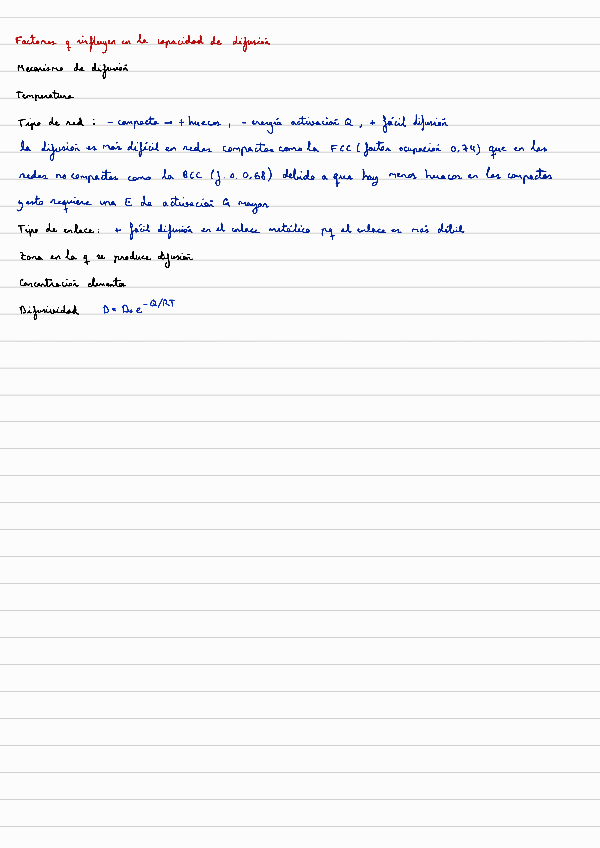 Factores q influyen en la capacidad de difusión
Mecanismo de difusión
Temperatura
Tipo de red : - compacta → + huecos , - energía activación Q , + fácil difusión
la difusión es más difícil en redes compactas como la FCC (factor ocupación 0,74) que en las
redes no compactas como la BCC (f. o. 0,68) debido a que hay menos huecos en las compactas
y esto requiere una E de activación Q mayor
Tipo de enlace : + fácil difusión en el enlace metálico pq el enlace es más débil
Zona en la q se produce difusión
Concentración elementos
Difusividad D = D₀ e^-Q/RT